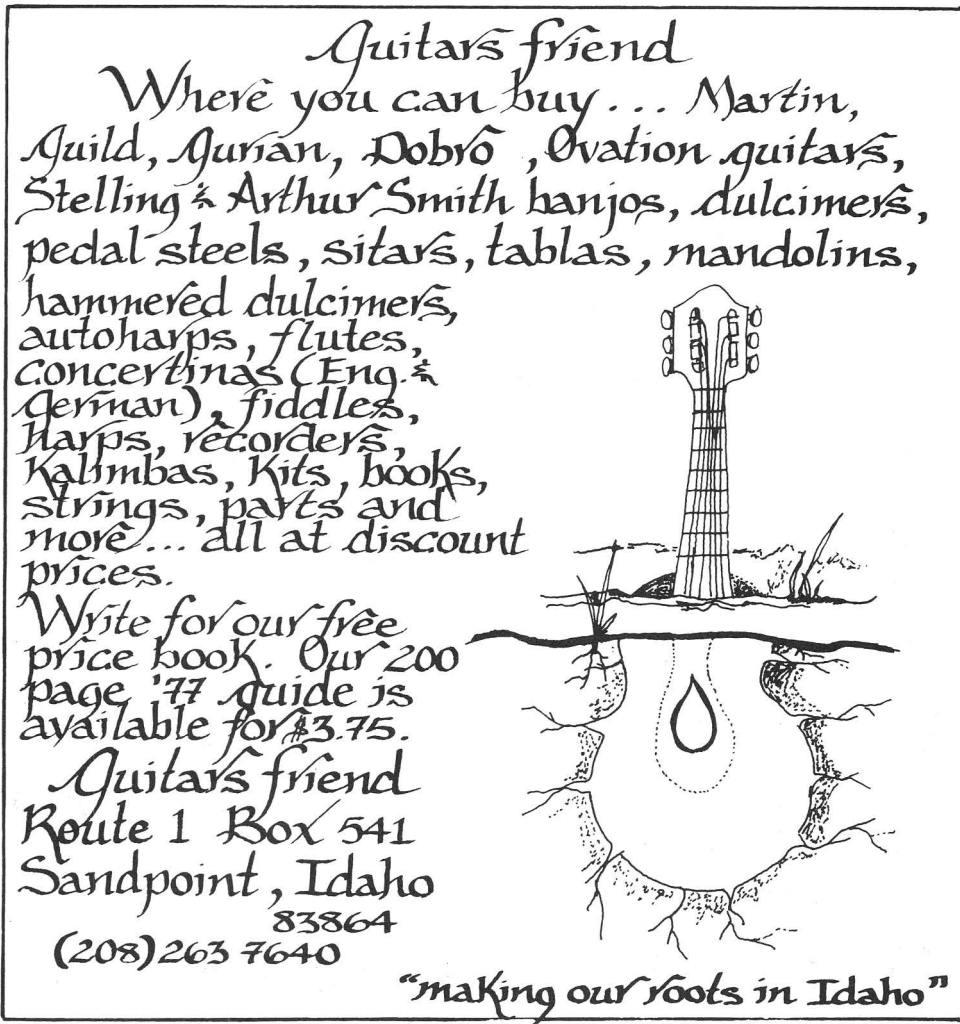 Guitars friend
Where you can buy... Martin,
Guild, Gurian, Dobro , Ovation guitars,
Stelling & Arthur Smith banjos, dulcimers,
pedal steels, sitars, tablas, mandolins,
hammered dulcimers,
autoharps, flutes,
concertinas (Eng. &
German), fiddles,
harps, recorders,
Kalimbas, Kits, books,
strings, parts and
more... all at discount
prices.
Write for our free
price book. Our 200
page '77 guide is
available for $3.75.
Guitars friend
Route 1 Box 541
Sandpoint, Idaho
83864
(208) 263 7640
"making our roots in Idaho"